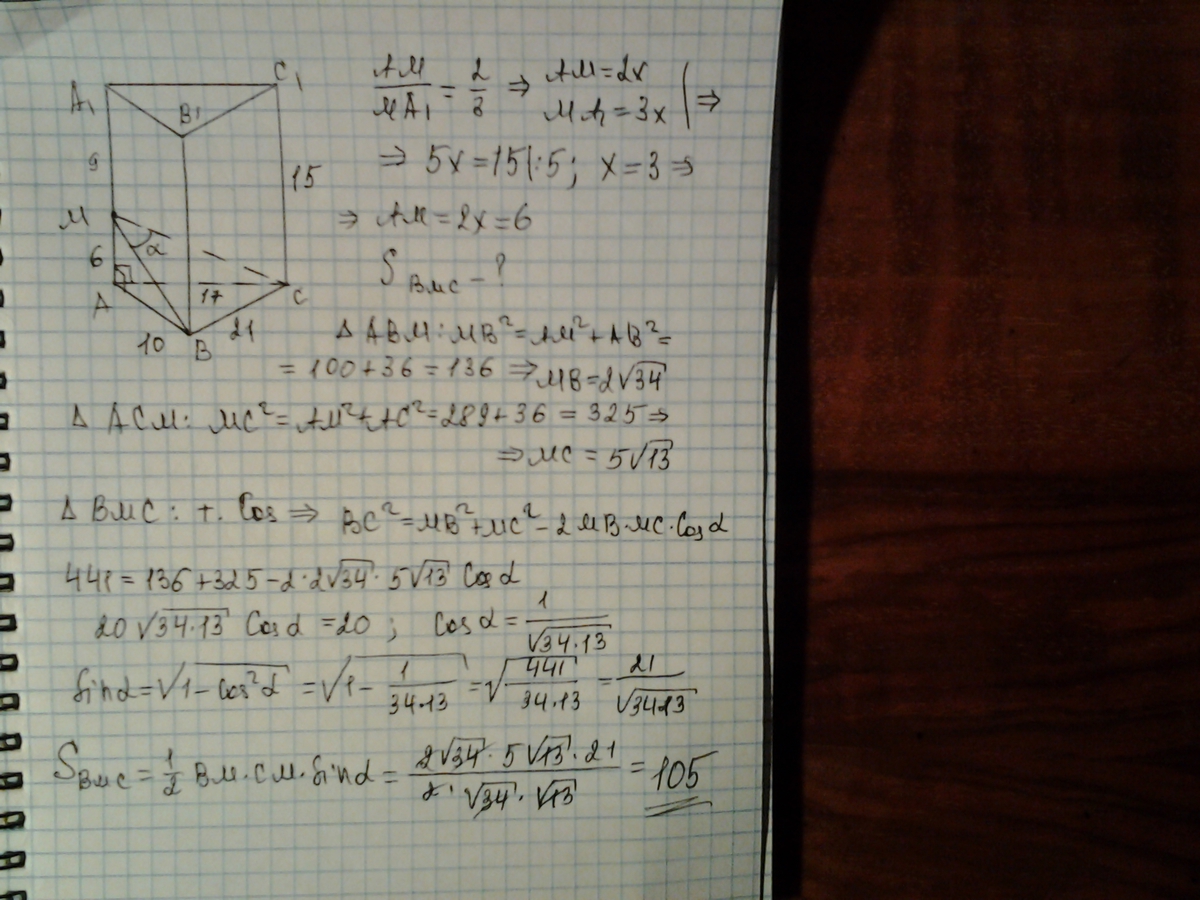 A₁ C₁ B₁
9 15
M α
6
A 17 C
10 B 21
AM/MA₁ = 2/3 ⇒ AM = 2x
MA₁ = 3x | ⇒
⇒ 5x = 15 |:5; x = 3 ⇒
⇒ AM = 2x = 6
S_BMC - ?
Δ ABM: MB² = AM² + AB² =
= 100 + 36 = 136 ⇒ MB = 2√34
Δ ACM: MC² = AM² + AC² = 289 + 36 = 325 ⇒
⇒ MC = 5√13
Δ BMC: т. Cos ⇒ BC² = MB² + MC² - 2MB·MC·Cosα
441 = 136 + 325 - 2·2√34·5√13 Cosα
20√34·13 Cosα = 20; Cosα = 1/√34·13
Sinα = √1 - cos²α = √1 - 1/34·13 = √441/34·13 = 21/√34·13
S_BMC = 1/2 BM·CM·Sinα = 2√34·5√13·21/2·√34·√13 = 105